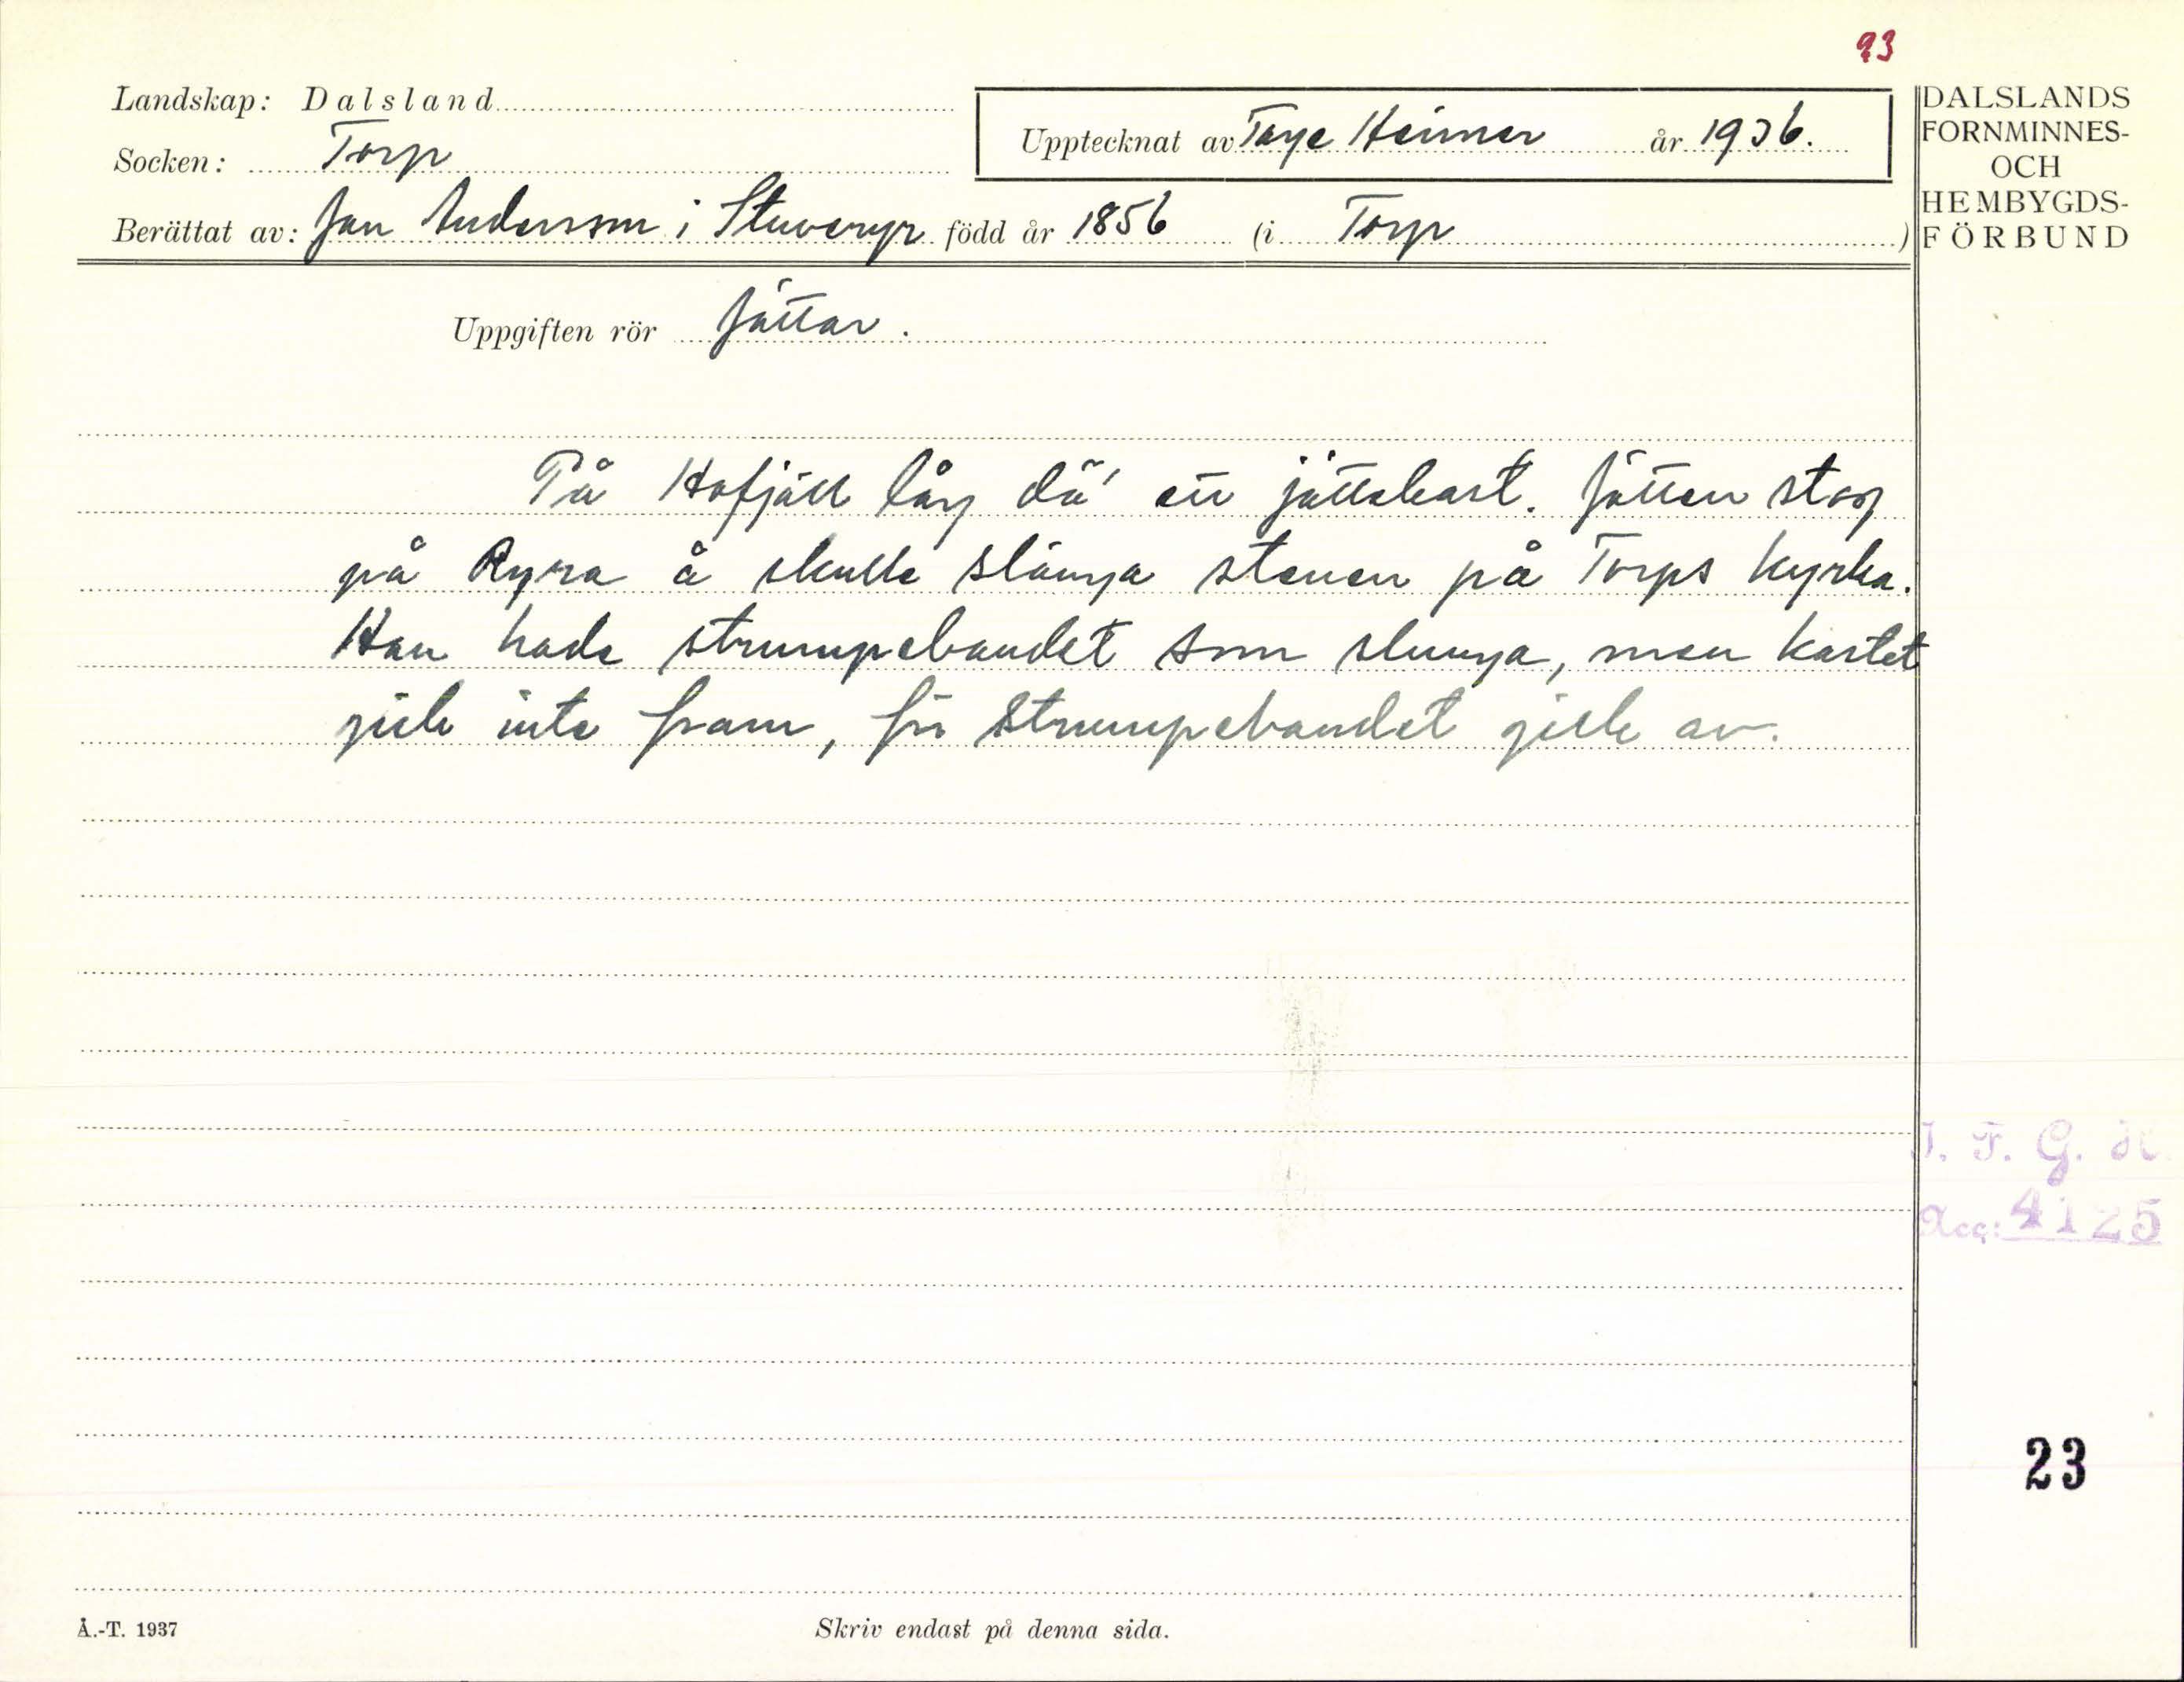 93
Landskap: Dalsland
Socken: Torp
Upptecknat av Tage Heimer år 1936.
Berättat av: Jan Andersson i Stuveryr född år 1856 (i Torp )
DALSLANDS
FORNMINNES-
OCH
HEMBYGDS-
FÖRBUND
Uppgiften rör Jättar.
På Hofjäll låg dä' ett jättekast. Jätten stog
på Ryra å skulle slänga stenen på Torps kyrka.
Han hade strumpebandet som slunga, men kastet
gick inte fram, för strumpebandet gick av.
I. F. G. H.
Acc: 4125
23
Å.-T. 1937
Skriv endast på denna sida.